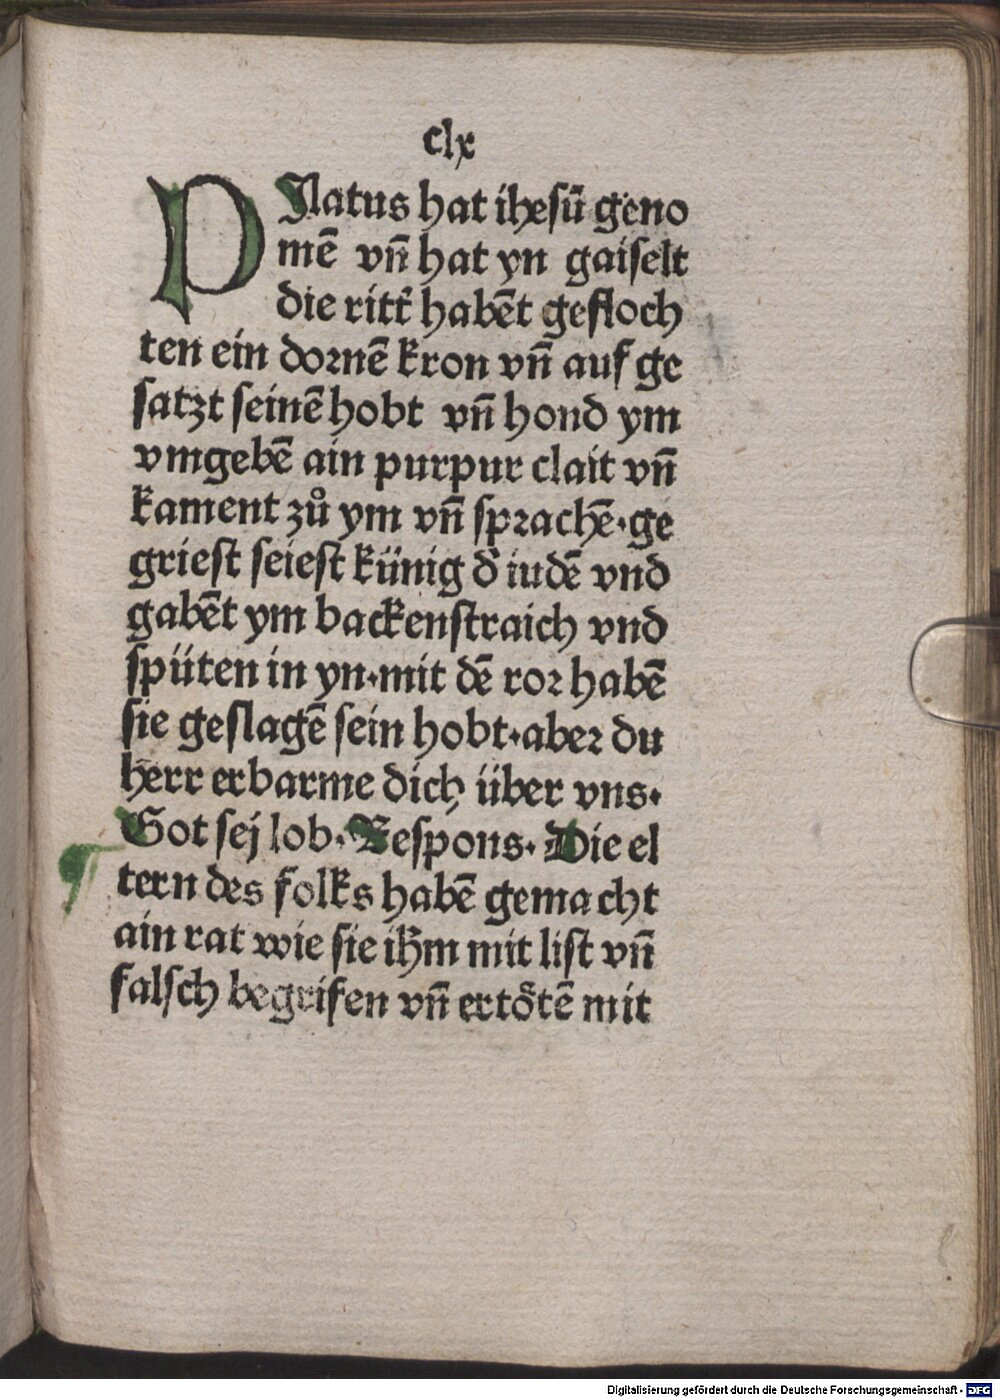 clx
PIlatus hat ihesū geno
mē vn̄ hat yn gaiselt
die ritt̄ habēt gefloch
ten ein dornē kron vn̄ auf ge
satzt seinē hobt vn̄ hond ym
vmgebē ain purpur clait vn̄
kament zů ym vn̄ sprachē·ge
griest seiest künig d̄ iudē vnd
gabēt ym backenstraich vnd
spüten in yn·mit dē ror habē
sie geslagē sein hobt·aber du
herr erbarme dich über vns·
Got sej lob·Respons·Die el
tern des folks habē gemacht
ain rat wie sie ih̄m mit list vn̄
falsch begrifen vn̄ ertötē mit
Digitalisierung gefördert durch die Deutsche Forschungsgemeinschaft - DFG